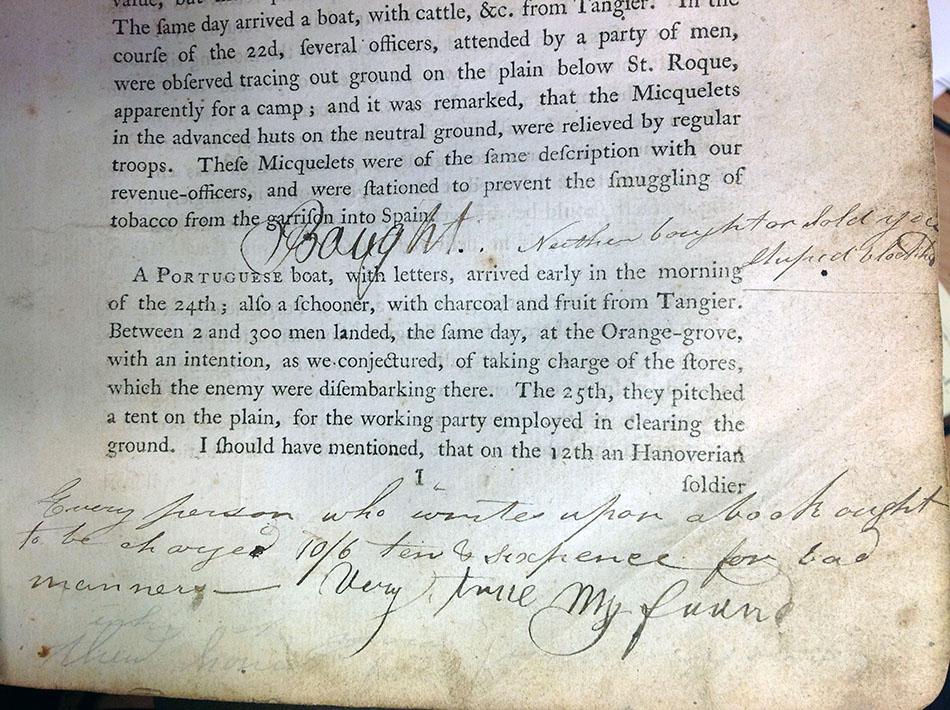 The ſame day arrived a boat, with cattle, &c. from Tangier. In the
courſe of the 22d, ſeveral officers, attended by a party of men,
were obſerved tracing out ground on the plain below St. Roque,
apparently for a camp; and it was remarked, that the Micquelets
in the advanced huts on the neutral ground, were relieved by regular
troops. Theſe Micquelets were of the ſame deſcription with our
revenue-officers, and were ſtationed to prevent the ſmuggling of
tobacco from the garriſon into Spain.
Bought. Neither bought or sold you
stuped
A PORTUGUESE boat, with letters, arrived early in the morning
of the 24th; alſo a ſchooner, with charcoal and fruit from Tangier.
Between 2 and 300 men landed, the ſame day, at the Orange-grove,
with an intention, as we conjectured, of taking charge of the ſtores,
which the enemy were diſembarking there. The 25th, they pitched
a tent on the plain, for the working party employed in clearing the
ground. I ſhould have mentioned, that on the 12th an Hanoverian
I ſoldier
Every person who writes upon a book ought
to be charged 10/6 ten & sixpence for bad
manners — Very true My friend